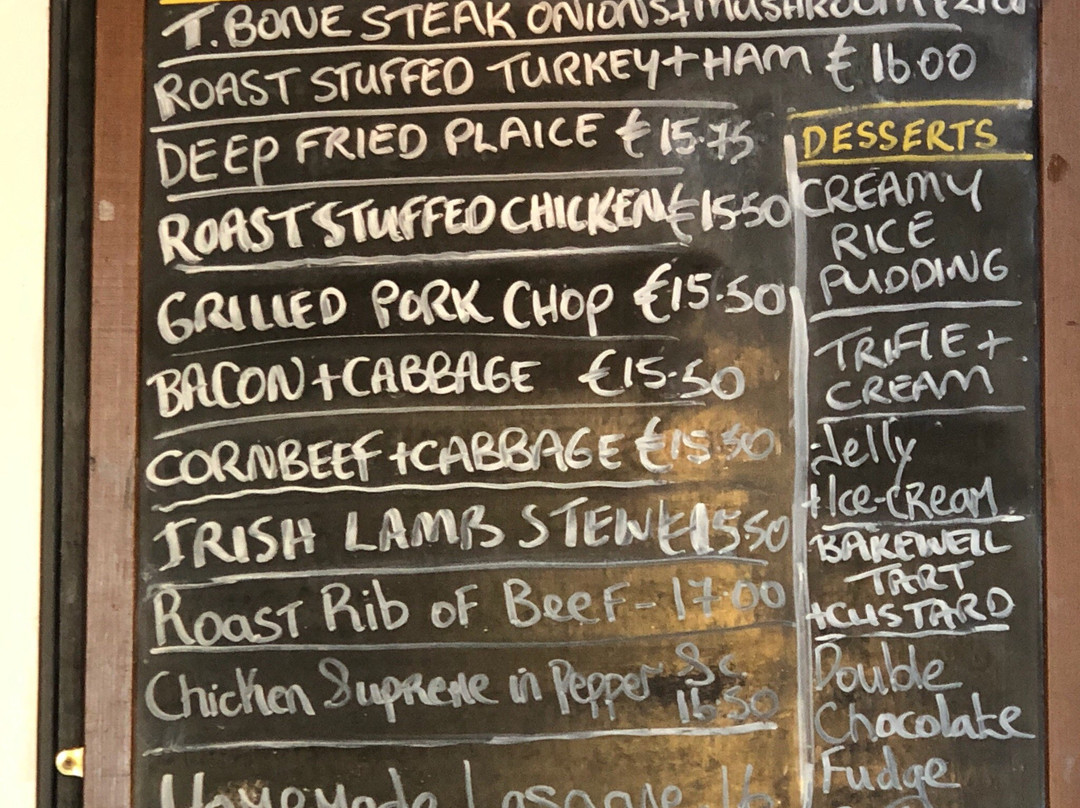 T. BONE STEAK ONIONS + MUSHROOM
ROAST STUFFED TURKEY + HAM € 16.00
DEEP FRIED PLAICE € 15.75
ROAST STUFFED CHICKEN €15.50
GRILLED PORK CHOP €15.50
BACON + CABBAGE €15.50
CORNBEEF + CABBAGE €15.50
IRISH LAMB STEW €15.50
Roast Rib of Beef - 17.00
Chicken Supreme in Pepper Sc
16.50
Homemade Lasagne
DESSERTS
CREAMY
RICE
PUDDING
TRIFLE +
CREAM
Jelly
+ Ice-cream
BAKEWELL
TART
+ CUSTARD
Double
Chocolate
Fudge